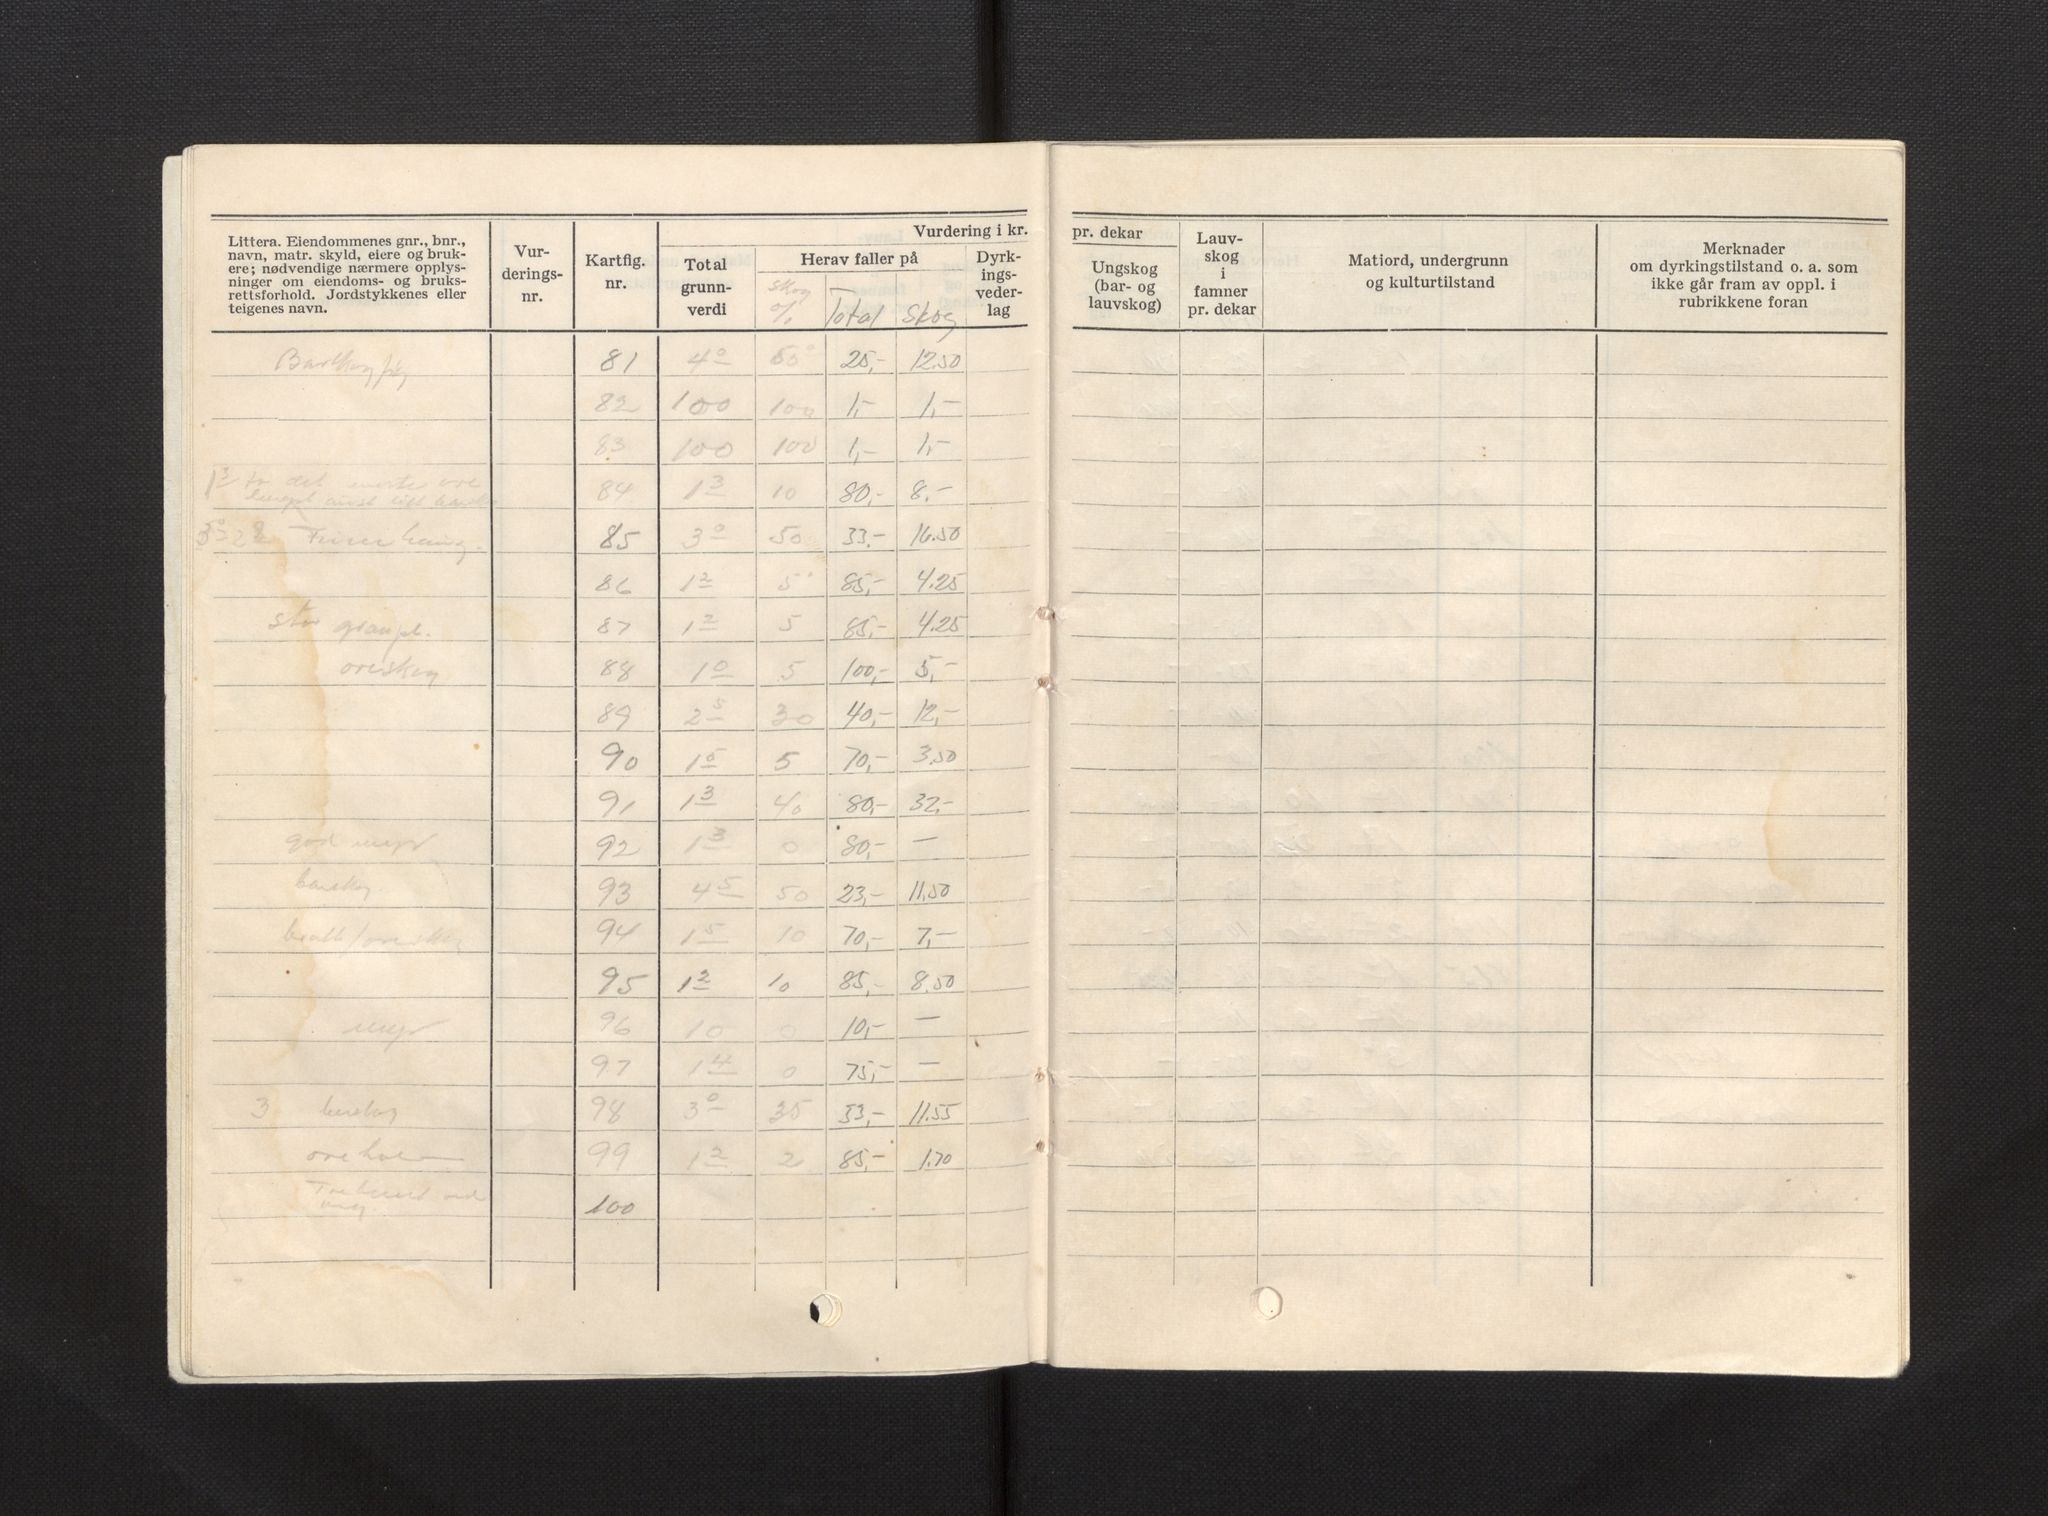 Littera. Eiendommenes gnr., bnr.,
navn, matr. skyld, eiere og bruk-
ere; nødvendige nærmere opplys-
ninger om eiendoms- og bruks-
rettsforhold. Jordstykkenes eller
teigenes navn.
Vur-
derings-
nr.
Kartfig.
nr.
Vurdering i kr.
Total
grunn-
verdi
Herav faller på
skog
%
Total
Skog
Dyrk-
ings-
veder-
lag
pr. dekar
Ungskog
(bar- og
lauvskog)
Lauv-
skog
i
famner
pr. dekar
Matjord, undergrunn
og kulturtilstand
Merknader
om dyrkingstilstand o. a. som
ikke går fram av oppl. i
rubrikkene foran
81 4 0 50 25,- 12.50
82 100 100 1,- 1,-
83 100 100 1,- 1,-
1 3 det
84 1 3 10 80,- 8.-
85 3 0 50 33.- 16.50
86 1 2 5 85,- 4.25
stor granpl. 87 1 2 5 85,- 4.25
oreskog 88 1 0 5 100,- 5,-
89 2 5 30 40,- 12,-
90 1 5 5 70,- 3.50
91 1 3 40 80,- 32,-
god myr 92 1 3 0 80,- —
barskog. 93 4 5 50 23,- 11.50
bratt/oreskog 94 1 5 10 70,- 7,-
95 1 2 10 85,- 8.50
myr 96 10 0 10,- —
97 1 4 0 75,- —
3 barskog 98 3 0 35 33,- 11.55
99 1 2 2 85,- 1.70
100